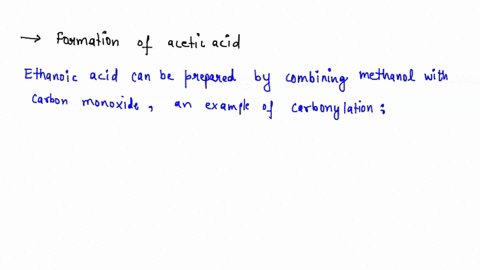 → Formation of acetic acid
Ethanoic acid can be prepared by combining methanol with
carbon monoxide, an example of carbonylation;